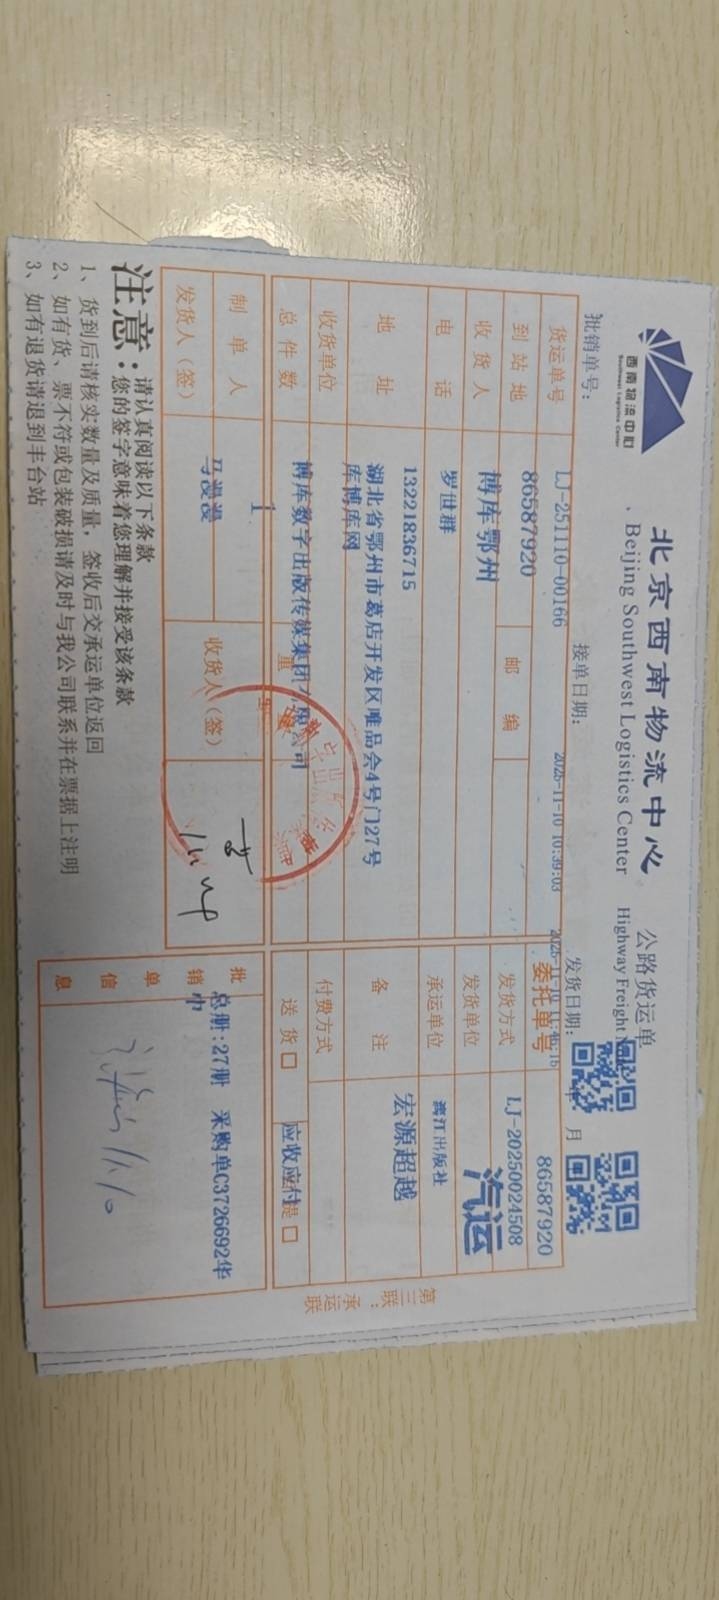 西南物流中心
Southwest Logistics Center
北京西南物流中心
公路货运单
Beijing Southwest Logistics Center
Highway Freight
批销单号:
接单日期:
发货日期:
年
月
2025-11-10 10:39:03
货运单号
LJ-251110-00166
委托单号
86587920
到站地
86587920
邮编
发货方式
LJ-20250024508
收货人
博库鄂州
发货单位
汽运
电话
罗世群
承运单位
漓江出版社
13221836715
地址
湖北省鄂州市葛店开发区唯品会4号门27号
库博库网
备注
宏源超越
收货单位
博库数字出版传媒集团有限公司
付费方式
总件数
1
重
送货 □
应收应付
提 □
制单人
马漫漫
收货人(签)
发货人(签)
批销单信息
总册:27册 采购单C3726692华
中
第三联:承运联
注意:
请认真阅读以下条款
您的签字意味着您理解并接受该条款
1、货到后请核实数量及质量,签收后交承运单位返回
2、如有货、票不符或包装破损请及时与我公司联系并在票据上注明
3、如有退货请退到丰台站